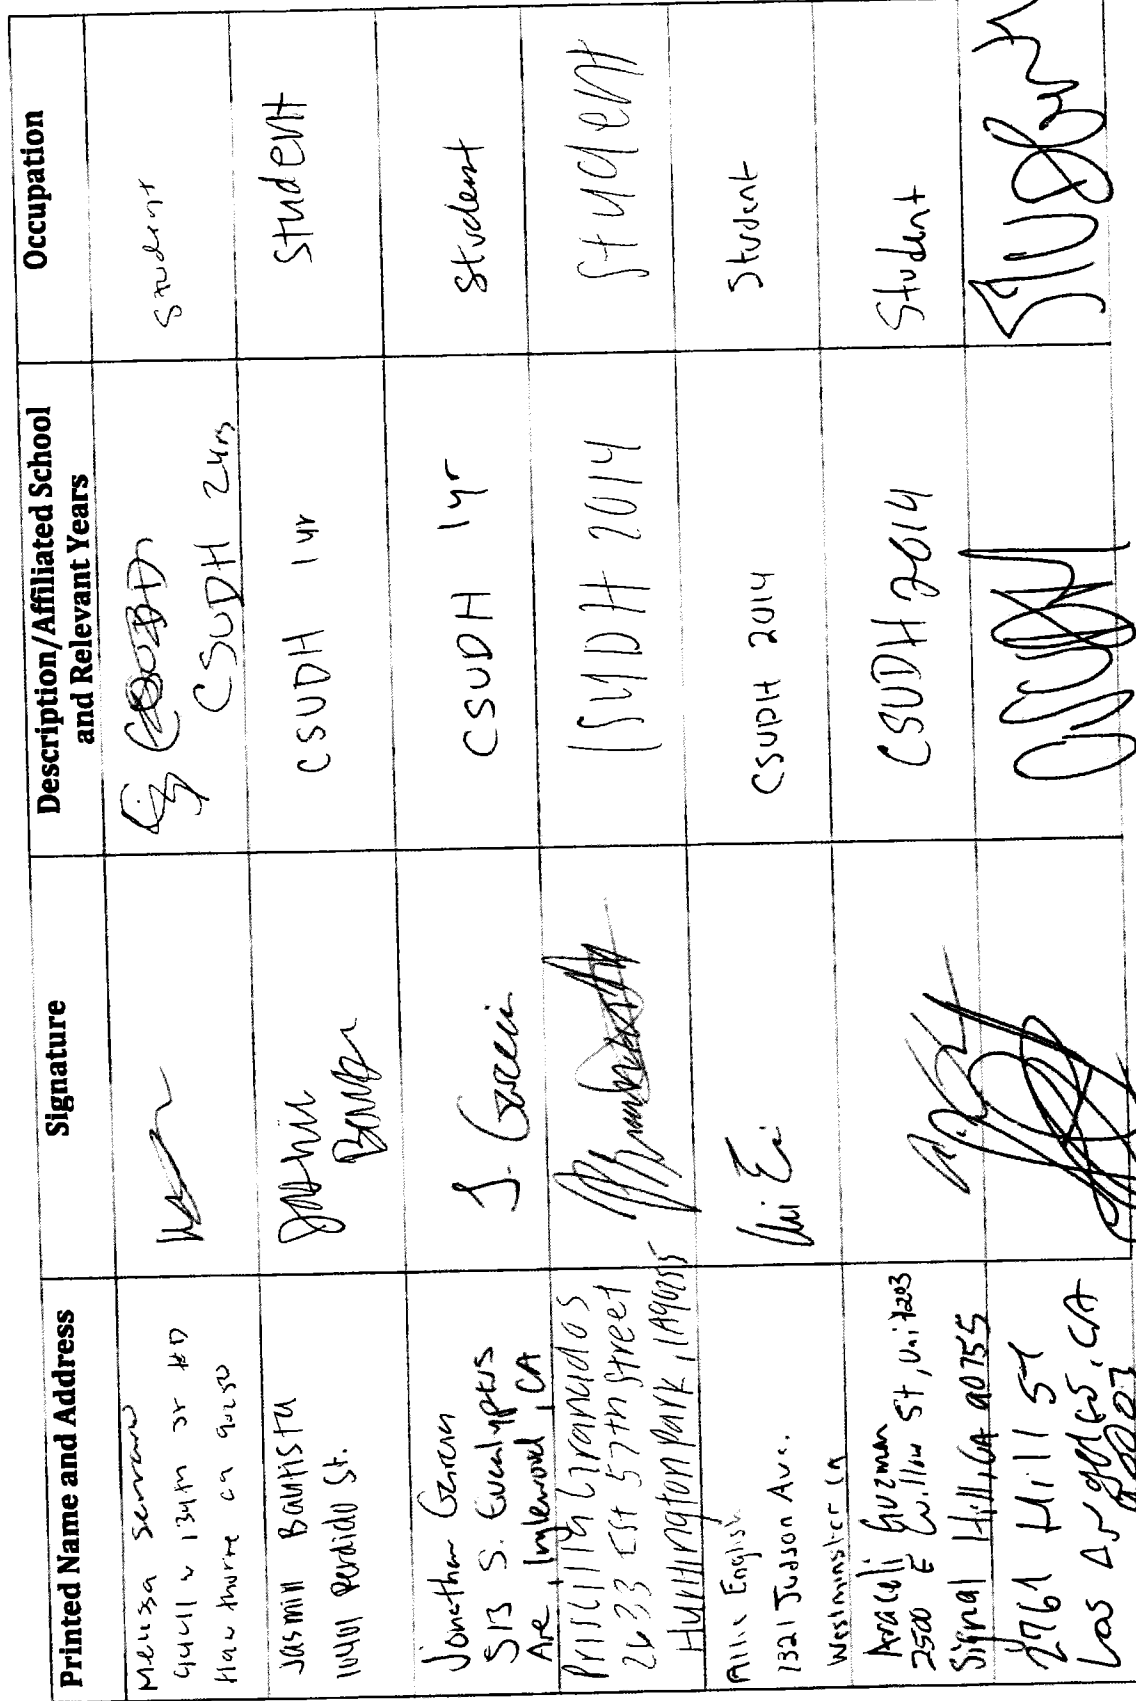 Printed Name and Address
Signature
Description/Affiliated School
and Relevant Years
Occupation
Melissa Serrano
W 134th
Hawthorne ca 90250
CSUDH 2yrs
Student
Jasmin Bautista
Perdido St.
CSUDH 1yr
Student
Jonathan Garcia
513 S. Eucalyptus
Ave, Inglewood, CA
J. Garcia
CSUDH 1yr
Student
Priscilla Granados
2633 Est 57th Street
Huntington Park, CA 90255
CSUDH 2014
Student
English
Judson Ave.
Westminster Ca
CSUDH 2014
Student
Araceli Guzman
2500 E Willow St, Unit 203
Signal Hill, CA 90755
CSUDH 2014
Student
2761 Hill St
Los Angeles, CA